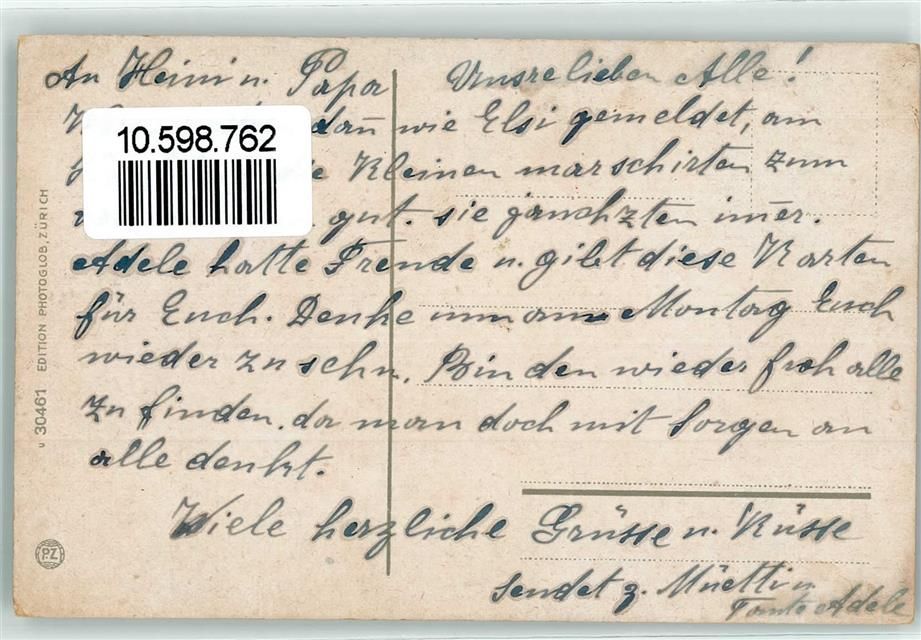 An Heini u. Papa Unsre lieben Alle!
10.598.762
dañ wie Elsi gemeldet, am
Kleinen marschirten zum
gut. sie jauchzten im̄er.
Adele hatte Freude u. gibt diese Karten
für Euch. Denke nun am Montag Euch
wieder zu sehn. Bin den wieder froh alle
zu finden. da man doch mit Sorgen an
alle denkt.
Viele herzliche Grüsse u. Küsse
sendet z. Müetti u
Tante Adele
u 30461 EDITION PHOTOGLOB, ZÜRICH
P.Z